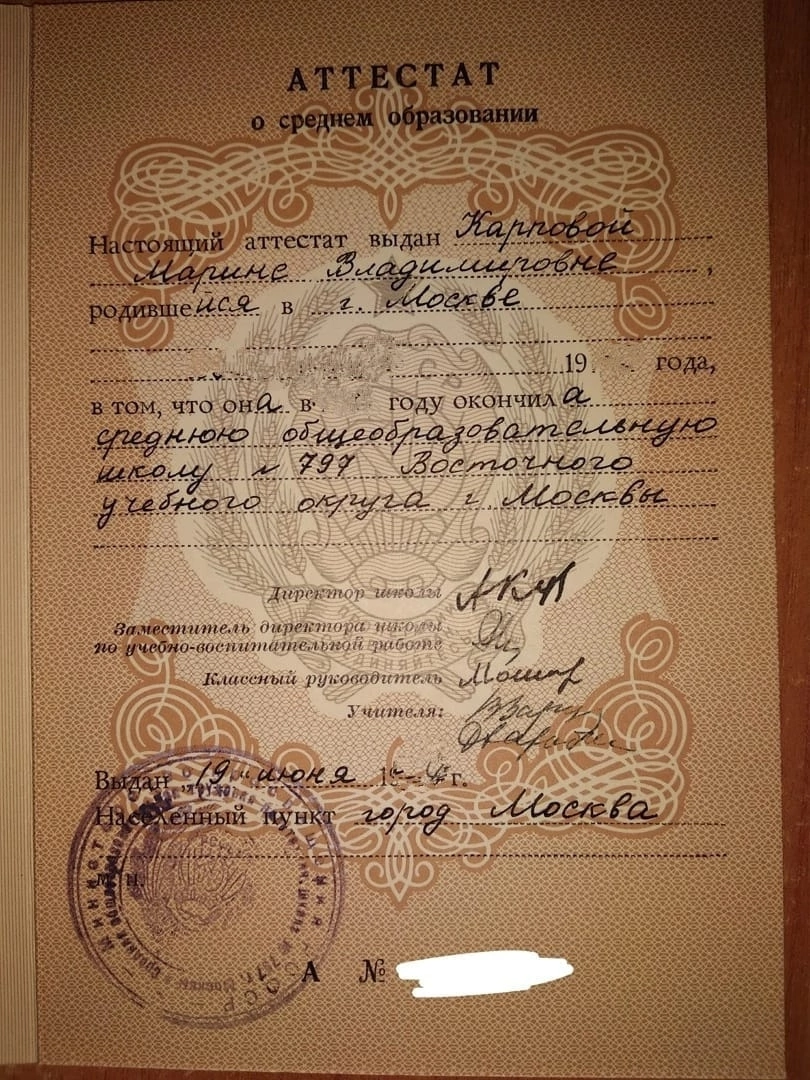 АТТЕСТАТ
о среднем образовании
Настоящий аттестат выдан Карповой
Марине Владимировне,
родившейся в г. Москве
19 года,
в том, что она в году окончила
среднюю общеобразовательную
школу № 797 Восточного
учебного округа г Москвы
Директор школы
Заместитель директора школы
по учебно-воспитательной работе
Классный руководитель
Учителя:
Выдан „19" июня г.
Населённый пункт город Москва
м. п.
А №